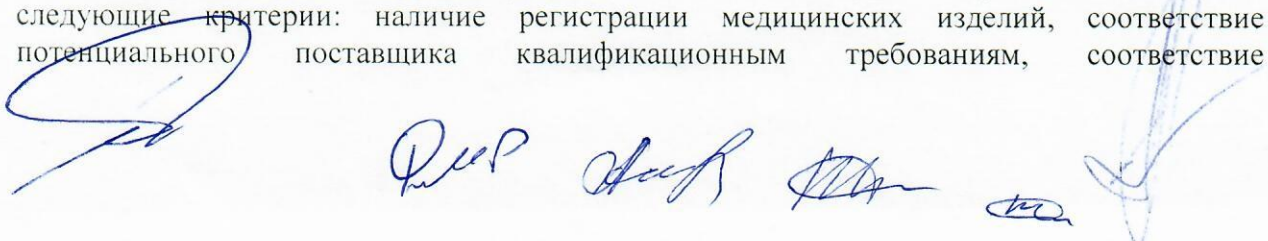 следующие критерии: наличие регистрации медицинских изделий, соответствие
потенциального поставщика квалификационным требованиям, соответствие